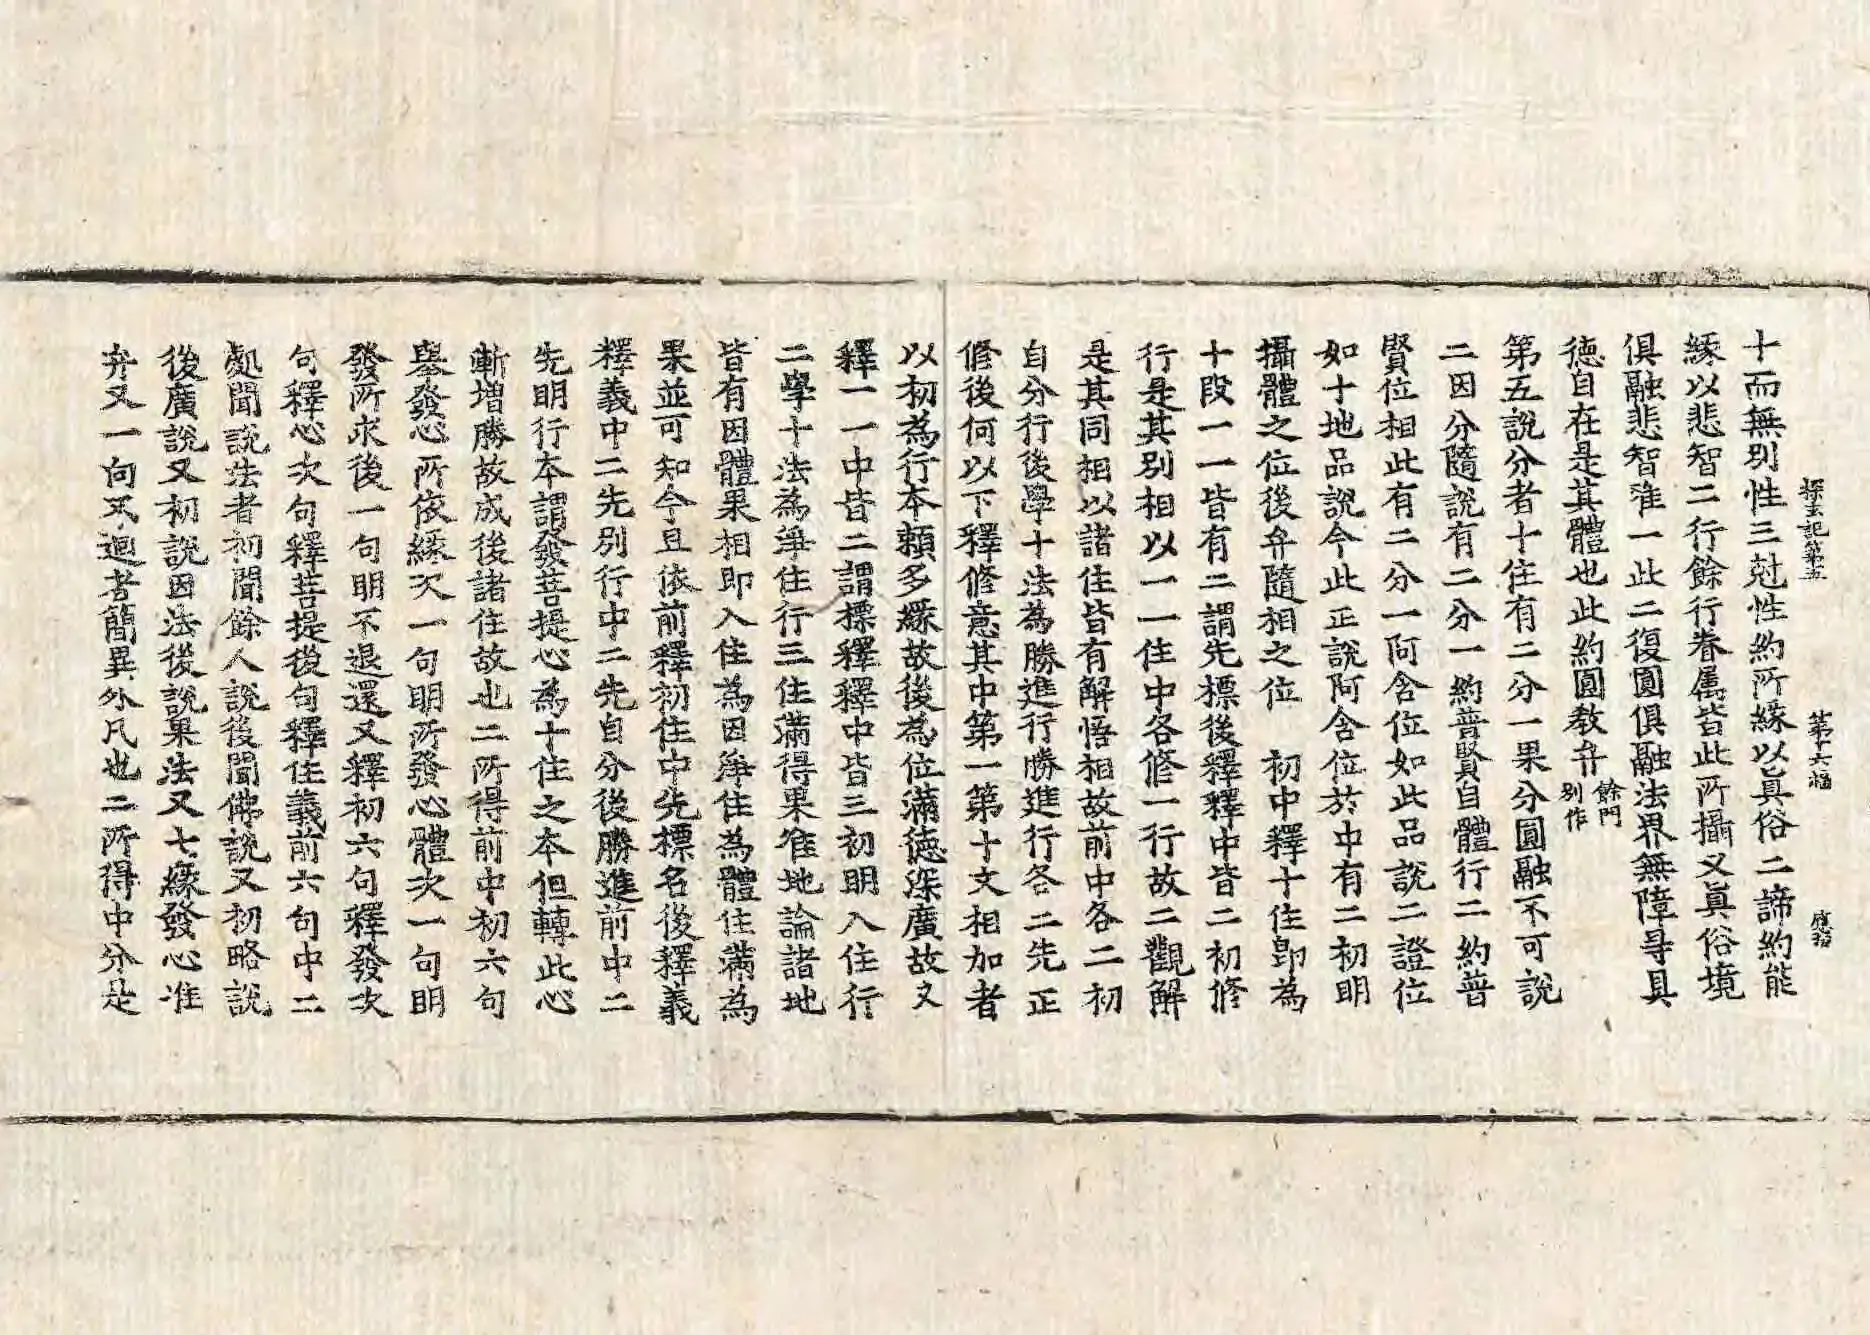 探玄記第五 第十六幅 應招
十而無別性三尅性約所緣以眞俗二諦約能
緣以悲智二行餘行眷属皆此所攝又眞俗境
俱融悲智准一此二復圓俱融法界無障㝵具
徳自在是其體也此約圓教弁餘門別作
第五說分者十住有二分一果分圓融不可說
二因分隨說有二分一約普賢自體行二約普
賢位相此有二分一阿含位如此品說二證位
如十地品說今此正說阿含位於中有二初明
攝體之位後弁隨相之位 初中釋十住卽為
十段一一皆有二謂先標後釋釋中皆二初修
行是其別相以一一住中各修一行故二觀解
是其同相以諸住皆有解悟相故前中各二初
自分行後學十法為勝進行勝進行各二先正
修後何以下釋修意其中第一第十文相加者
以初為行本頼多縁故後為位滿徳深廣故又
釋一一中皆二謂標釋釋中皆三初明入住行
二學十法為淨住行三住滿得果准地論諸地
皆有因體果相即入住為因淨住為體住滿為
果並可知今且依前釋初住中先標名後釋義
釋義中二先別行中二先自分後勝進前中二
先明行本謂發菩提心為十住之本但轉此心
漸增勝故成後諸住故也二所得前中初六句
舉發心所依縁次一句明所發心體次一句明
發所求後一句明不退還又釋初六句釋發次
句釋心次句釋菩提後句釋住義前六句中二
處聞說法者初聞餘人說後聞佛說又初略說
後廣說又初說因法後說果法又七縁發心准
弁又一向不迴者簡異外凡也二所得中分是